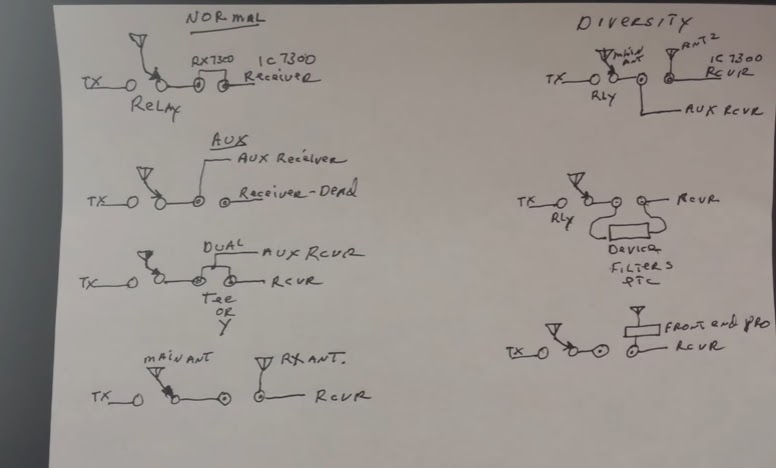 NORMAL
RX7300 IC 7300
TX Receiver
Relay
AUX
AUX Receiver
TX Receiver-Dead
DUAL AUX RCVR
TX RCVR
Tee
OR
Y
MAIN ANT RX ANT.
TX RCVR
DIVERSITY
MAIN ANT ANT 2
IC 7300
TX RCVR
RLY
AUX RCVR
TX RCVR
RLY
DEVICE
FILTERS
ETC
FRONT end PRO
TX RCVR